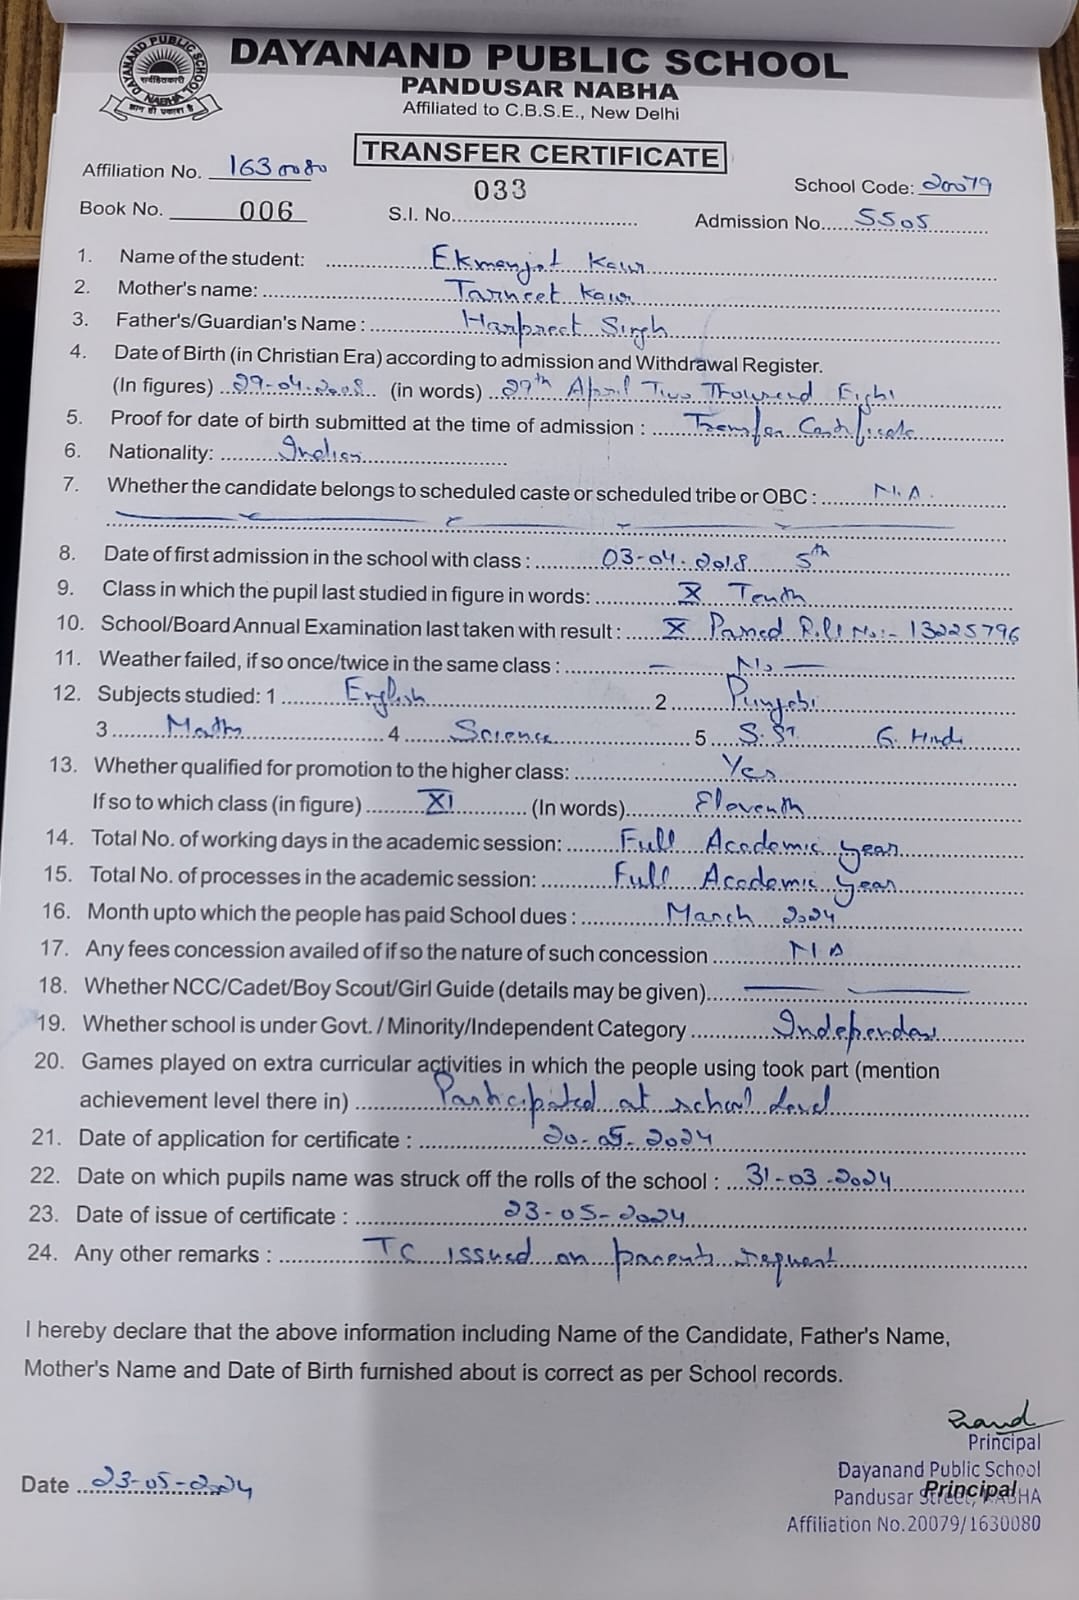 DAYANAND PUBLIC SCHOOL
PANDUSAR NABHA
Affiliated to C.B.S.E., New Delhi
DAYANAND PUBLIC SCHOOL
NABHA
TRANSFER CERTIFICATE
Affiliation No. 1630080
033
School Code: 20079
Book No. 006 S.I. No. Admission No. 5505
1. Name of the student: Ekmanjot Kaur
2. Mother's name: Tarneet Kaur
3. Father's/Guardian's Name : Harpreet Singh
4. Date of Birth (in Christian Era) according to admission and Withdrawal Register.
(In figures) 29-04-2008 (in words) 29th April Two Thousand Eight
5. Proof for date of birth submitted at the time of admission : Transfer Certificate
6. Nationality: Indian
7. Whether the candidate belongs to scheduled caste or scheduled tribe or OBC : N.A.
8. Date of first admission in the school with class : 03-04-2018 5th
9. Class in which the pupil last studied in figure in words: X Tenth
10. School/Board Annual Examination last taken with result : X Passed Roll No:- 13225796
11. Weather failed, if so once/twice in the same class : — No —
12. Subjects studied: 1 English 2 Punjabi
3 Math 4 Science 5 S.St 6. Hindi
13. Whether qualified for promotion to the higher class: Yes
If so to which class (in figure) XI (In words) Eleventh
14. Total No. of working days in the academic session: Full Academic year
15. Total No. of processes in the academic session: Full Academic year
16. Month upto which the people has paid School dues : March 2024
17. Any fees concession availed of if so the nature of such concession N A
18. Whether NCC/Cadet/Boy Scout/Girl Guide (details may be given)
19. Whether school is under Govt. / Minority/Independent Category Independent
20. Games played on extra curricular activities in which the people using took part (mention
achievement level there in) Participated at school level
21. Date of application for certificate : 20-05-2024
22. Date on which pupils name was struck off the rolls of the school : 31-03-2024
23. Date of issue of certificate : 23-05-2024
24. Any other remarks : TC issued on parents request
I hereby declare that the above information including Name of the Candidate, Father's Name,
Mother's Name and Date of Birth furnished about is correct as per School records.
Principal
Dayanand Public School
Date 23-05-2024
Pandusar Street, NABHA
Principal
Affiliation No.20079/1630080